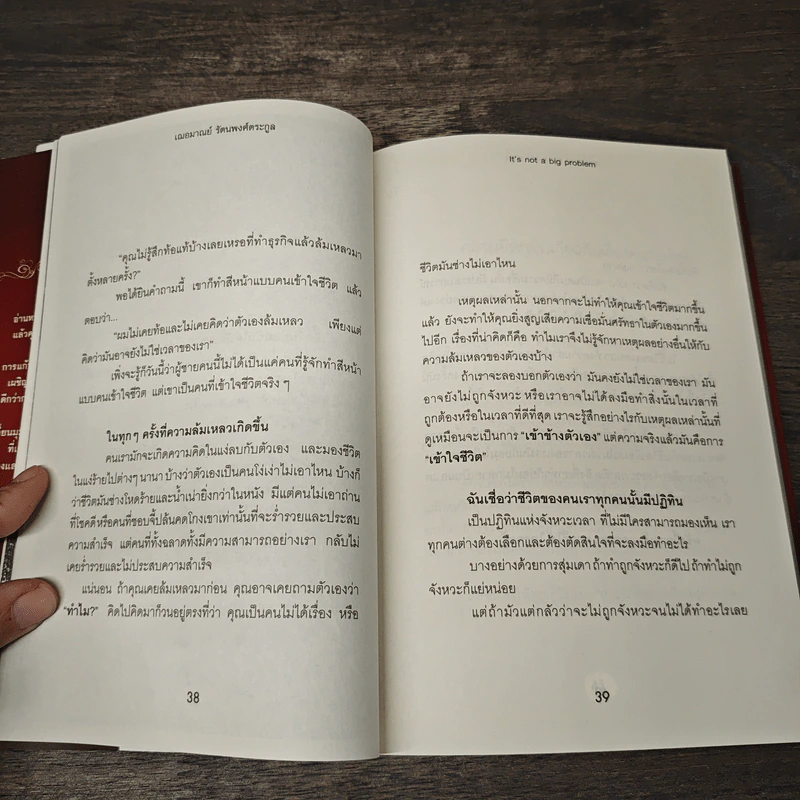 เฌอมาณย์ รัตนพงศ์ตระกูล
"คุณไม่รู้สึกท้อแท้บ้างเลยเหรอที่ทำธุรกิจแล้วล้มเหลวมา
ตั้งหลายครั้ง?"
พอได้ยินคำถามนี้ เขาก็ทำสีหน้าแบบคนเข้าใจชีวิต แล้ว
ตอบว่า...
"ผมไม่เคยท้อและไม่เคยคิดว่าตัวเองล้มเหลว เพียงแต่
คิดว่ามันอาจยังไม่ใช่เวลาของเรา"
เพิ่งจะรู้ก็วันนี้ว่าผู้ชายคนนี้ไม่ได้เป็นแค่คนที่รู้จักทำสีหน้า
แบบคนเข้าใจชีวิต แต่เขาเป็นคนที่เข้าใจชีวิตจริง ๆ
ในทุกๆ ครั้งที่ความล้มเหลวเกิดขึ้น
คนเรามักจะเกิดความคิดในแง่ลบกับตัวเอง และมองชีวิต
ในแง่ร้ายไปต่างๆ นานา บ้างว่าตัวเองเป็นคนโง่เง่าไม่เอาไหน บ้างก็
ว่าชีวิตมันช่างโหดร้ายและน้ำเน่ายิ่งกว่าในหนัง มีแต่คนไม่เอาถ่าน
ที่โชคดีหรือคนที่ชอบจี้ปล้นคดโกงเขาเท่านั้นที่จะร่ำรวยและประสบ
ความสำเร็จ แต่คนที่ทั้งฉลาดทั้งมีความสามารถอย่างเรา กลับไม่
เคยร่ำรวยและไม่ประสบความสำเร็จ
แน่นอน ถ้าคุณเคยล้มเหลวมาก่อน คุณอาจเคยถามตัวเองว่า
"ทำไม?" คิดไปคิดมาก็วนอยู่ตรงที่ว่า คุณเป็นคนไม่ได้เรื่อง หรือ
38
It's not a big problem
ชีวิตมันช่างไม่เอาไหน
เหตุผลเหล่านั้น นอกจากจะไม่ทำให้คุณเข้าใจชีวิตมากขึ้น
แล้ว ยังจะทำให้คุณยิ่งสูญเสียความเชื่อมั่นศรัทธาในตัวเองมากขึ้น
ไปอีก เรื่องที่น่าคิดก็คือ ทำไมเราจึงไม่รู้จักหาเหตุผลอย่างอื่นให้กับ
ความล้มเหลวของตัวเองบ้าง
ถ้าเราจะลองบอกตัวเองว่า มันคงยังไม่ใช่เวลาของเรา มัน
อาจยังไม่ถูกจังหวะ หรือเราอาจไม่ได้ลงมือทำสิ่งนั้นในเวลาที่
ถูกต้องหรือในเวลาที่ดีที่สุด เราจะรู้สึกอย่างไรกับเหตุผลเหล่านั้นที่
ดูเหมือนจะเป็นการ "เข้าข้างตัวเอง" แต่ความจริงแล้วมันคือการ
"เข้าใจชีวิต"
ฉันเชื่อว่าชีวิตของคนเราทุกคนนั้นมีปฏิทิน
เป็นปฏิทินแห่งจังหวะเวลา ที่ไม่มีใครสามารถมองเห็น เรา
ทุกคนต่างต้องเลือกและต้องตัดสินใจที่จะลงมือทำอะไร
บางอย่างด้วยการสุ่มเดา ถ้าทำถูกจังหวะก็ดีไป ถ้าทำไม่ถูก
จังหวะก็แย่หน่อย
แต่ถ้ามัวแต่กลัวว่าจะไม่ถูกจังหวะจนไม่ได้ทำอะไรเลย
39